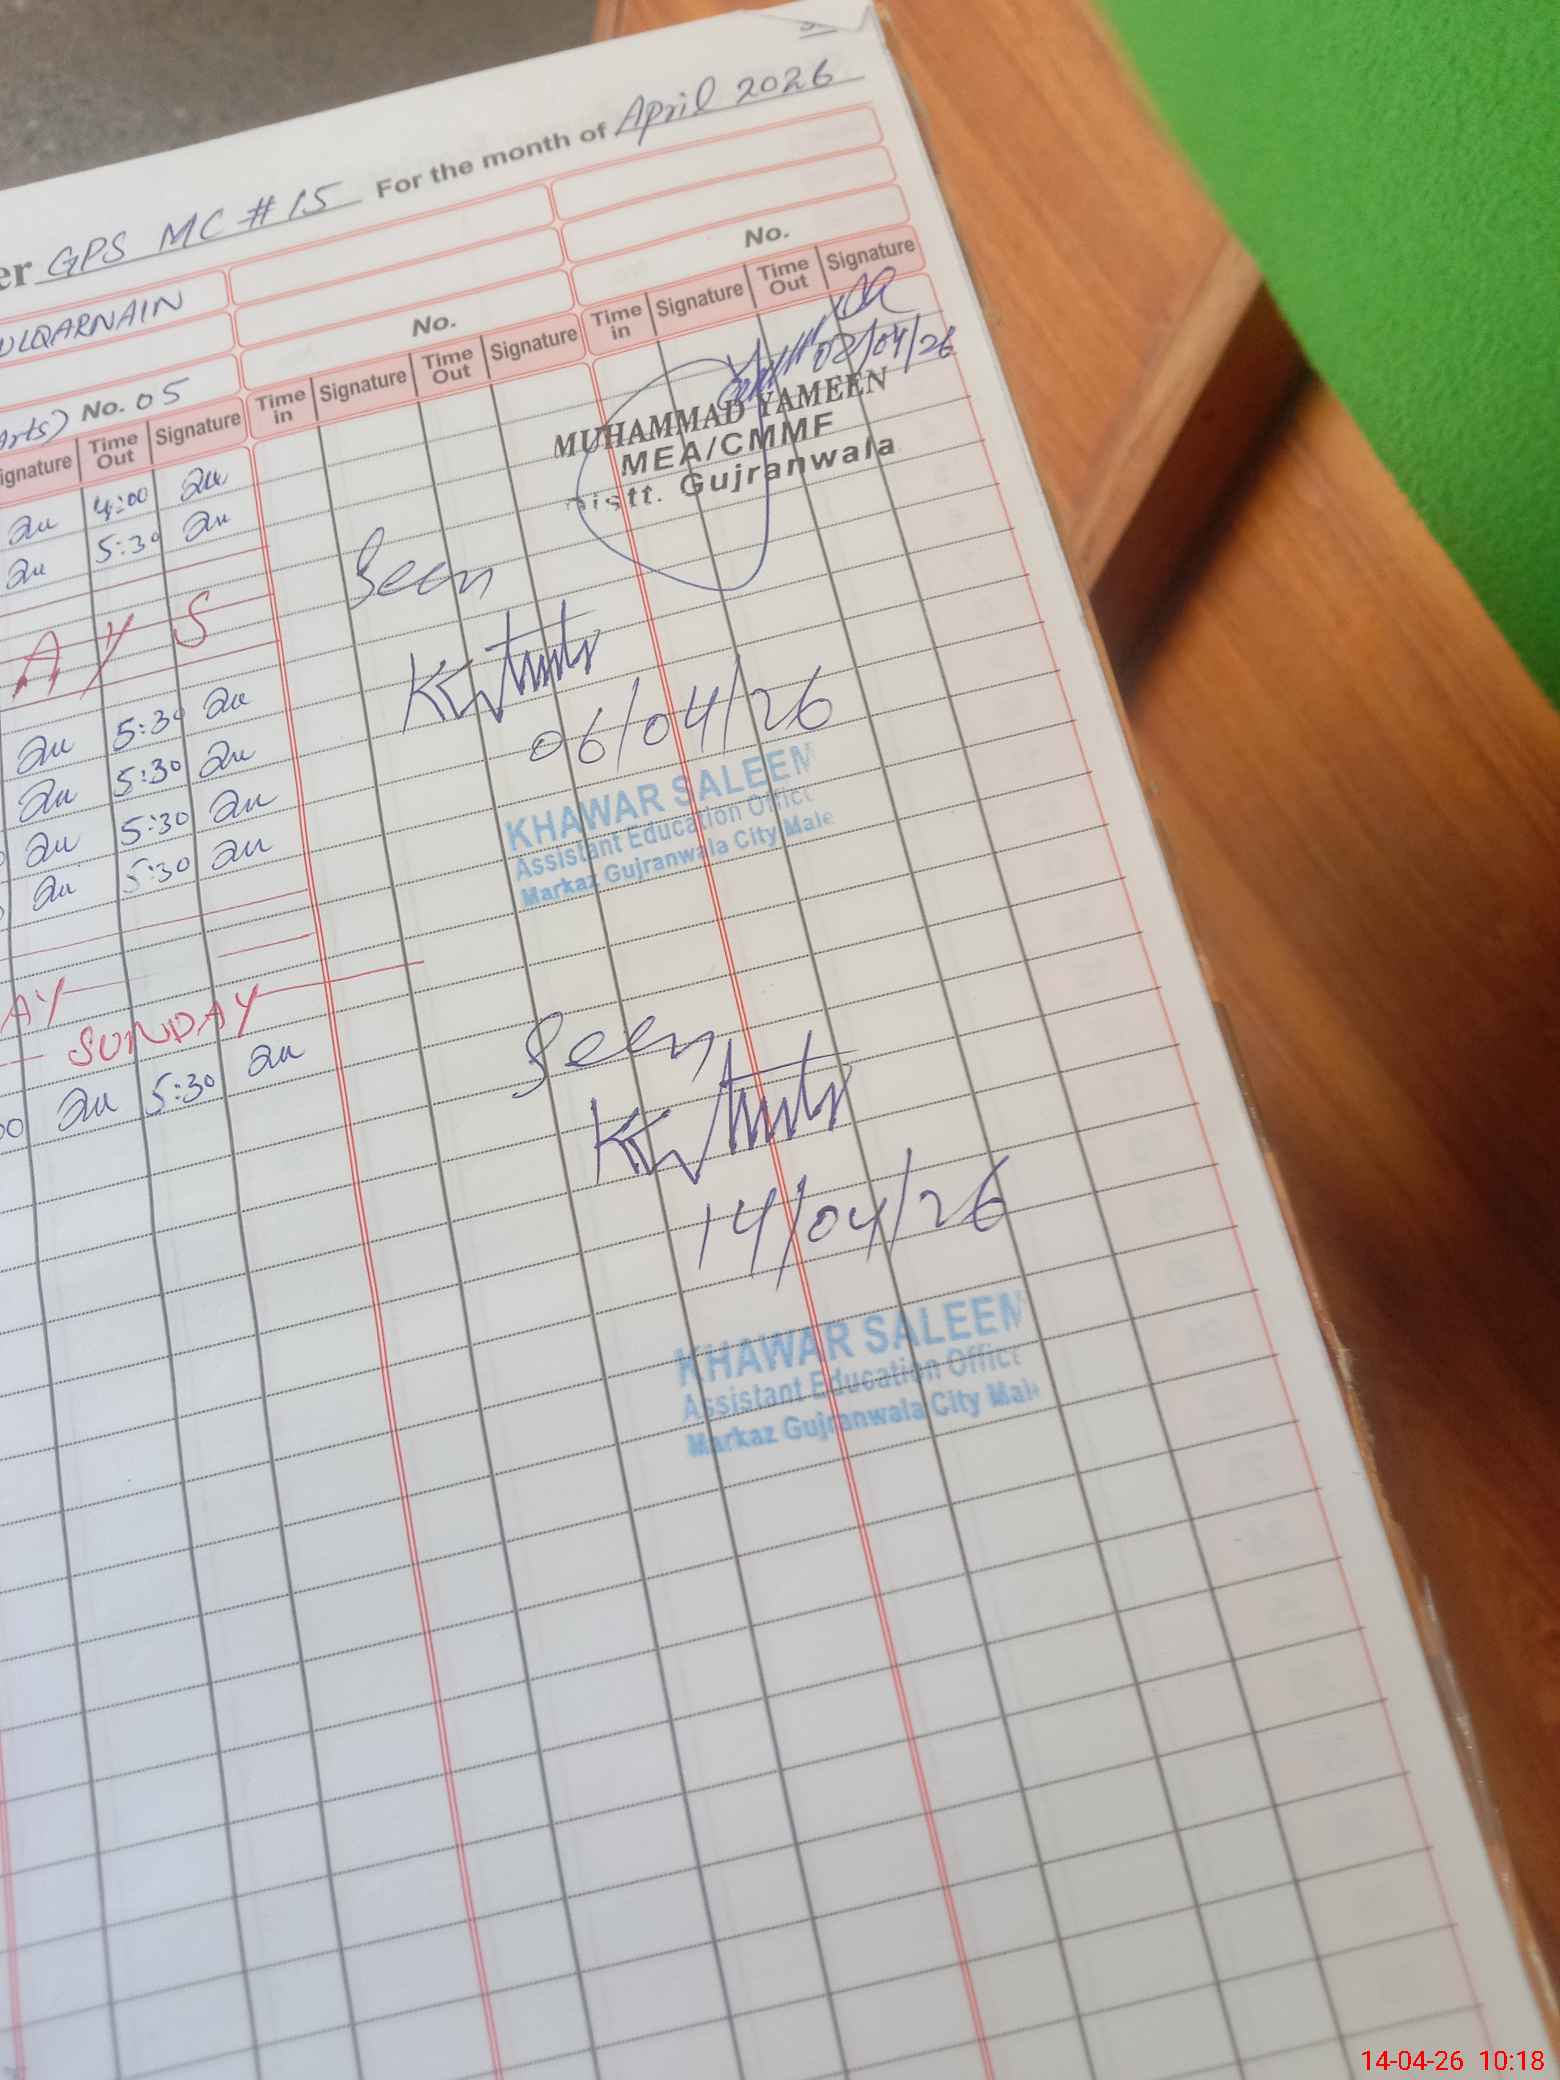 er GPS MC # 15 For the month of April 2026
ULQARNAIN
Arts) No. 05
No.
No.
ignature Time Out Signature Time in Signature Time Out Signature Time in Signature Time Out Signature
4:00
5:30
02/04/26
MUHAMMAD YAMEEN
MEA/CMMF
Distt. Gujranwala
A Y S
Seen
06/04/26
KHAWAR SALEEM
Assistant Education Office
Markaz Gujranwala City Male
5:30
5:30
5:30
5:30
AY
SUNDAY
00 5:30
Seen
14/04/26
KHAWAR SALEEM
Assistant Education Office
Markaz Gujranwala City Male
14-04-26 10:18